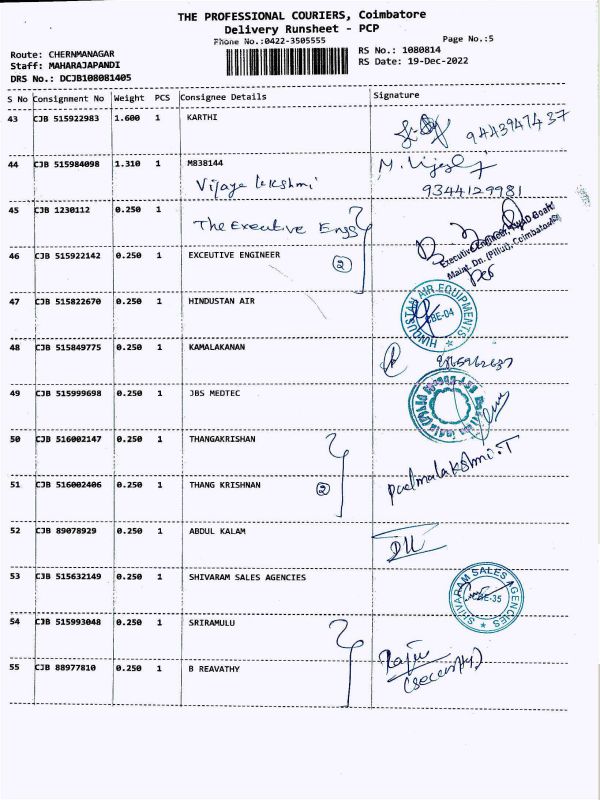 THE PROFESSIONAL COURIERS, Coimbatore
Delivery Runsheet - PCP
Phone No.:0422-3505555
Page No.:5
Route: CHERNMANAGAR
RS No.: 1080814
Staff: MAHARAJAPANDI
RS Date: 19-Dec-2022
DRS No.: DCJB108081405
S No Consignment No Weight PCS Consignee Details Signature
43 CJB 515922983 1.600 1 KARTHI
9443947437
44 CJB 515984098 1.310 1 M838144
Vijaya lakshmi
9344129981
45 CJB 1230112 0.250 1
The Executive Engg
Executive Engineer, Board
Maint. Dn. (Pillur), Coimbatore
46 CJB 515922142 0.250 1 EXCEUTIVE ENGINEER
2
47 CJB 515822670 0.250 1 HINDUSTAN AIR
HINDUSTAN AIR EQUIPMENTS
CBE-04
48 CJB 515849775 0.250 1 KAMALAKANAN
49 CJB 515999698 0.250 1 JBS MEDTEC
50 CJB 516002147 0.250 1 THANGAKRISHAN
51 CJB 516002406 0.250 1 THANG KRISHNAN
2
padmalakshmi.T
52 CJB 89078929 0.250 1 ABDUL KALAM
53 CJB 515632149 0.250 1 SHIVARAM SALES AGENCIES
SHIVARAM SALES AGENCIES
CBE-35
54 CJB 515993048 0.250 1 SRIRAMULU
55 CJB 88977810 0.250 1 B REAVATHY
Rajiv
(security)